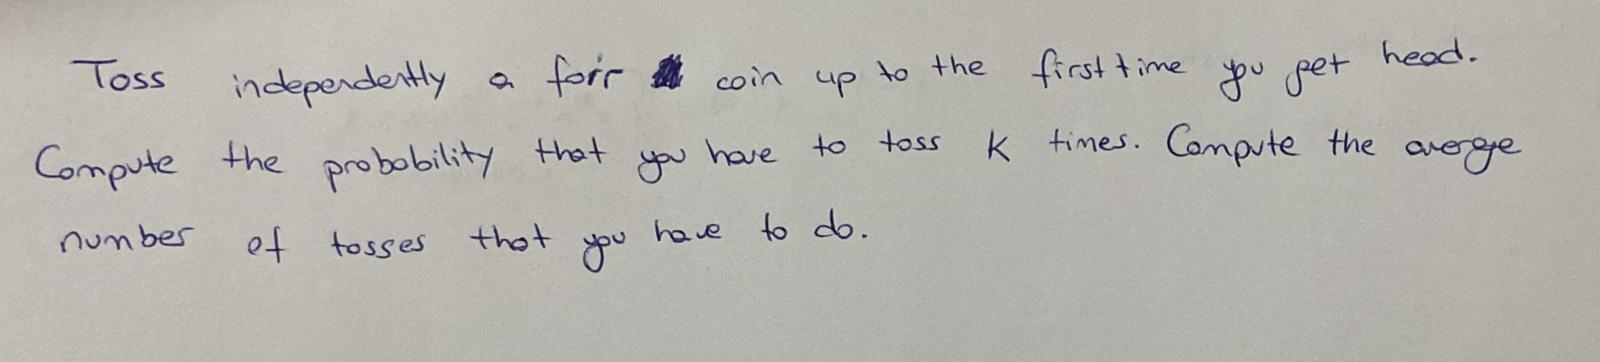 Toss independently a fair coin up to the first time you get head.
Compute the probability that you have to toss K times. Compute the average
number of tosses that you have to do.